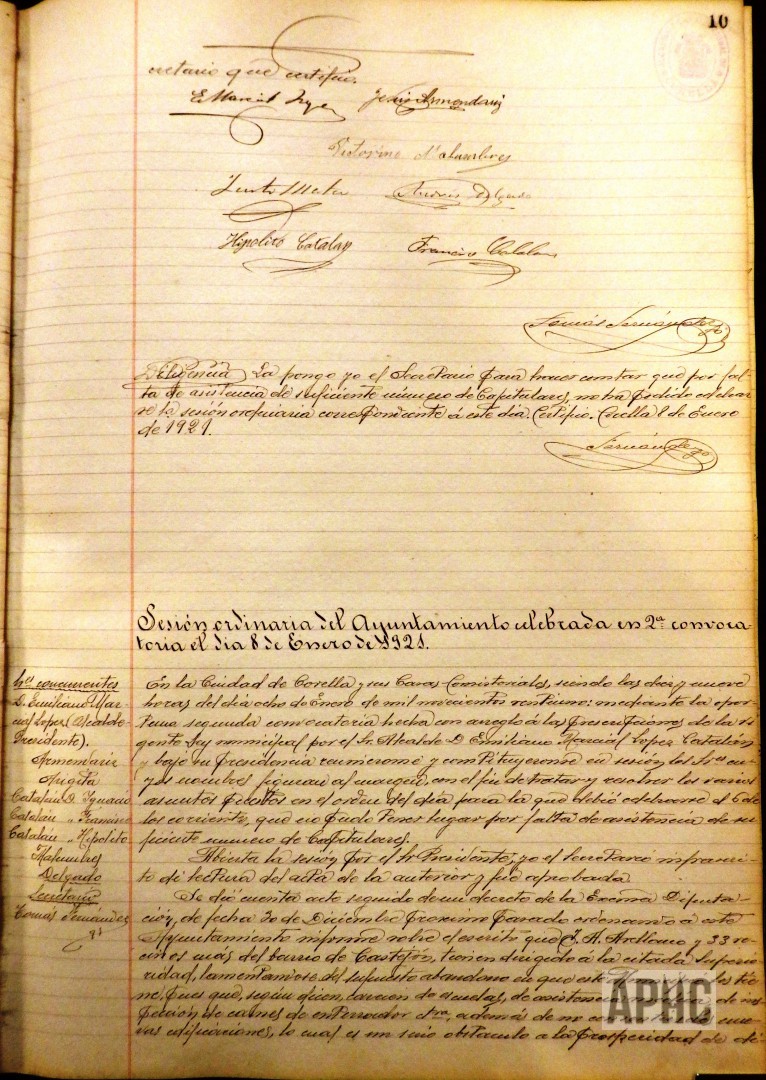 10
cretario que certifico.
E Marcial Lopez Jesus Armendariz
Victorino Malumbres
Justo Mateo Andrés Delgado
Hipolito Catalan Francisco Catalan
Tomás Fernández
Diligencia La pongo yo el Secretario para hacer constar que por fal-
ta de asistencia de suficiente número de Capitulares, no ha podido celebrar-
se la sesión ordinaria correspondiente á este día. Certifico. Corella 8 de Enero
de 1921.
Fernández
Sesión ordinaria del Ayuntamiento celebrada en 2ª convoca-
toria el dia 8 de Enero de 1921.
Sres. concurrentes
D. Emiliano Mar-
cial Lopez (Alcalde-
Presidente).
Armendariz
Catalán D. Ignacio
Catalán " Francisco
Catalán " Hipolito
Malumbres
Delgado
Secretario
Tomás Fernandez
En la Ciudad de Corella y sus Casas Consistoriales, siendo las diez y nueve
horas del día ocho de Enero de mil novecientos veintiuno: mediante la opor-
tuna segunda convocatoria hecha con arreglo á las prescripciones de la vi-
gente Ley municipal por el Sr. Alcalde D. Emiliano Marcial Lopez Catalán
y bajo su Presidencia reunieronse y constituyeronse en sesión los Sres cu-
yos nombres figuran al margen, con el fin de tratar y resolver los varios
asuntos puestos en el orden del día para la que debió celebrarse el 6 de
los corrientes, que no pudo tener lugar por falta de asistencia de su-
ficiente número de Capitulares.
Abierta la sesión por el Sr Presidente, yo el Secretario infrascri-
to di lectura del acta de la anterior y fué aprobada.
Se dió cuenta acto seguido de un decreto de la Excma Diputa-
ción, de fecha 30 de Diciembre proximo pasado ordenando á este
Ayuntamiento informe sobre el escrito que J. A. Arellano y 33 ve-
cinos más del barrio de Castejón, tienen dirigido á la citada Superio-
ridad, lamentandose del supuesto abandono en que este les tie-
ne, pues que, según dicen, carecen de escuelas, de asistencia de ins-
pección de carnes de enterrador etra, además de no nue-
vas edificaciones, lo cual es un serio obstaculo a la prosperidad de di-
APHC